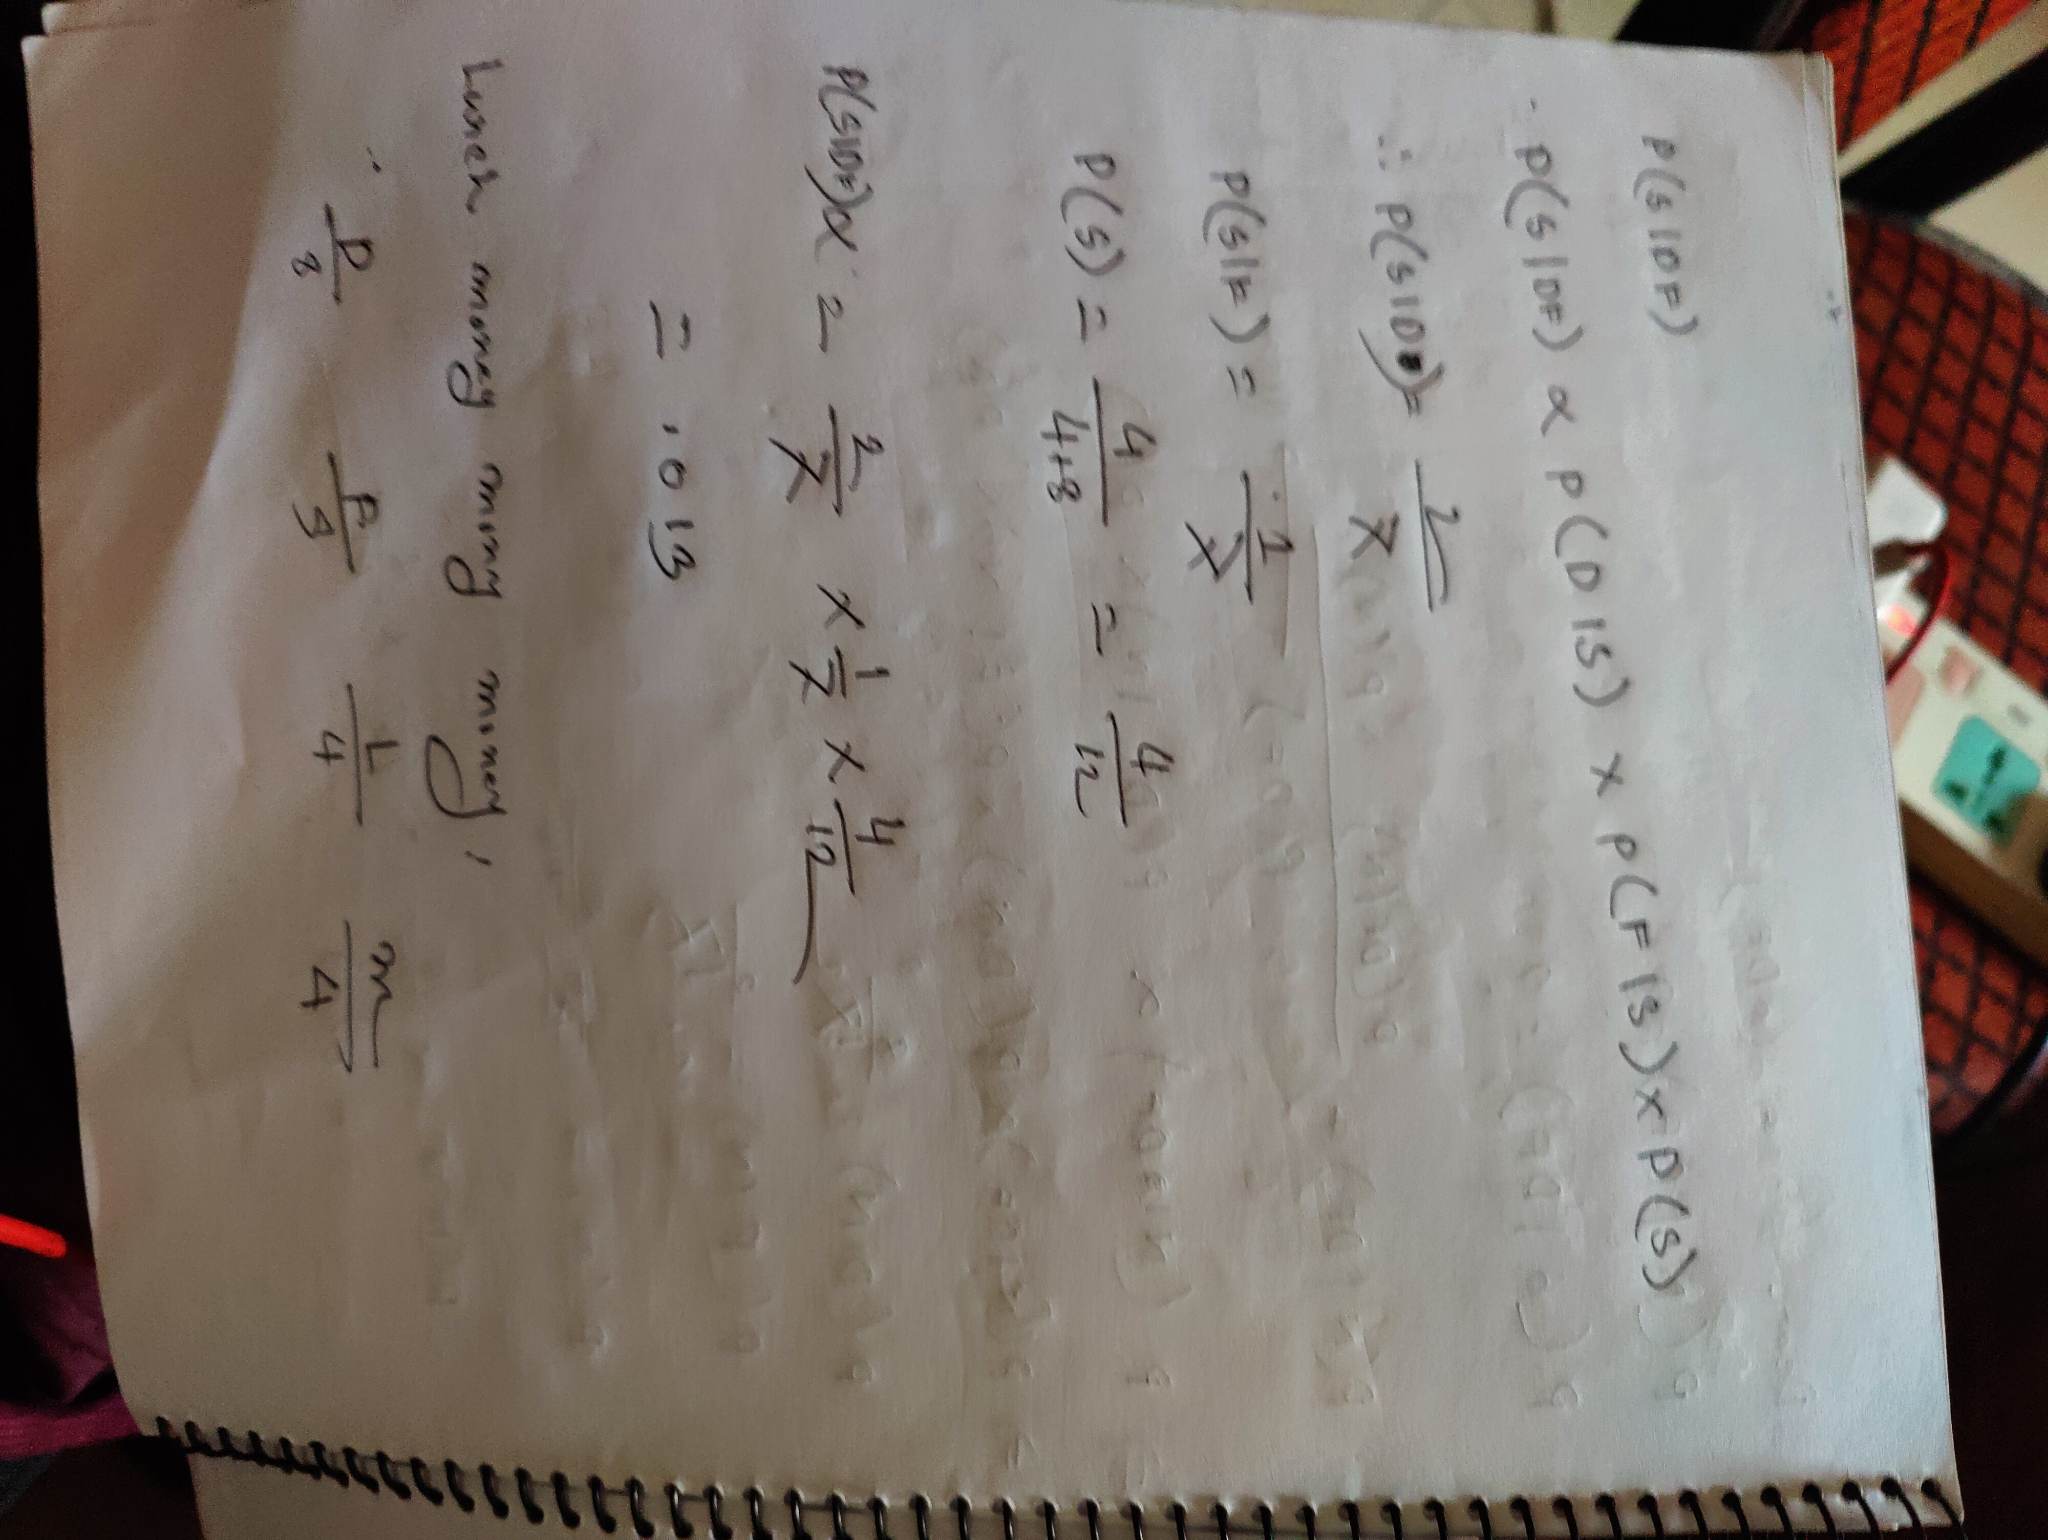 P(S|DF)
P(S|DF) ∝ P(D|S) × P(F|S) × P(S)
∴ P(S|D)= 2/7
P(S|F) = 1/7
P(S) = 4/4+8 = 4/12
P(S|DF)∝ = 2/7 × 1/7 × 4/12
= .013
Lunch money mony money,
D/8 F/8 L/4 m/4